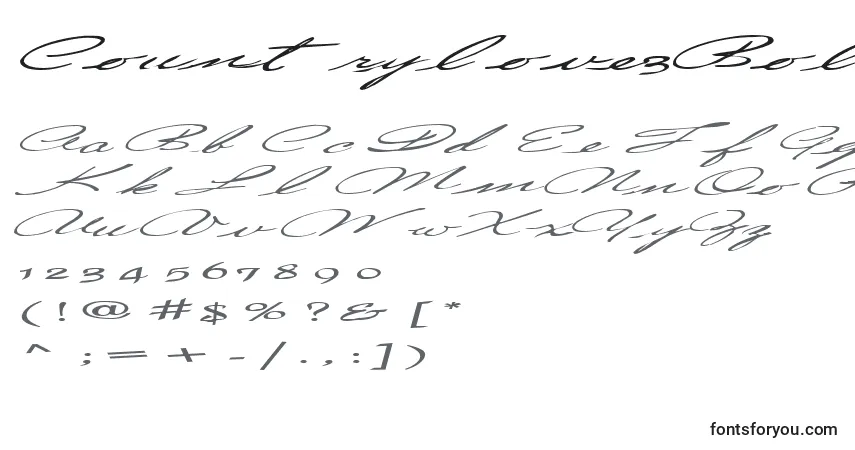 Count rylovesBol
Aa Bb Cc Dd Ee Ff Gg
Kk Ll Mm Nn Oo P
Uu Vv Ww Xx Yy Zz
1 2 3 4 5 6 7 8 9 0
( ! @ # $ % ? & [ *
^ ; = + - / . , : ] )
fontsforyou.com